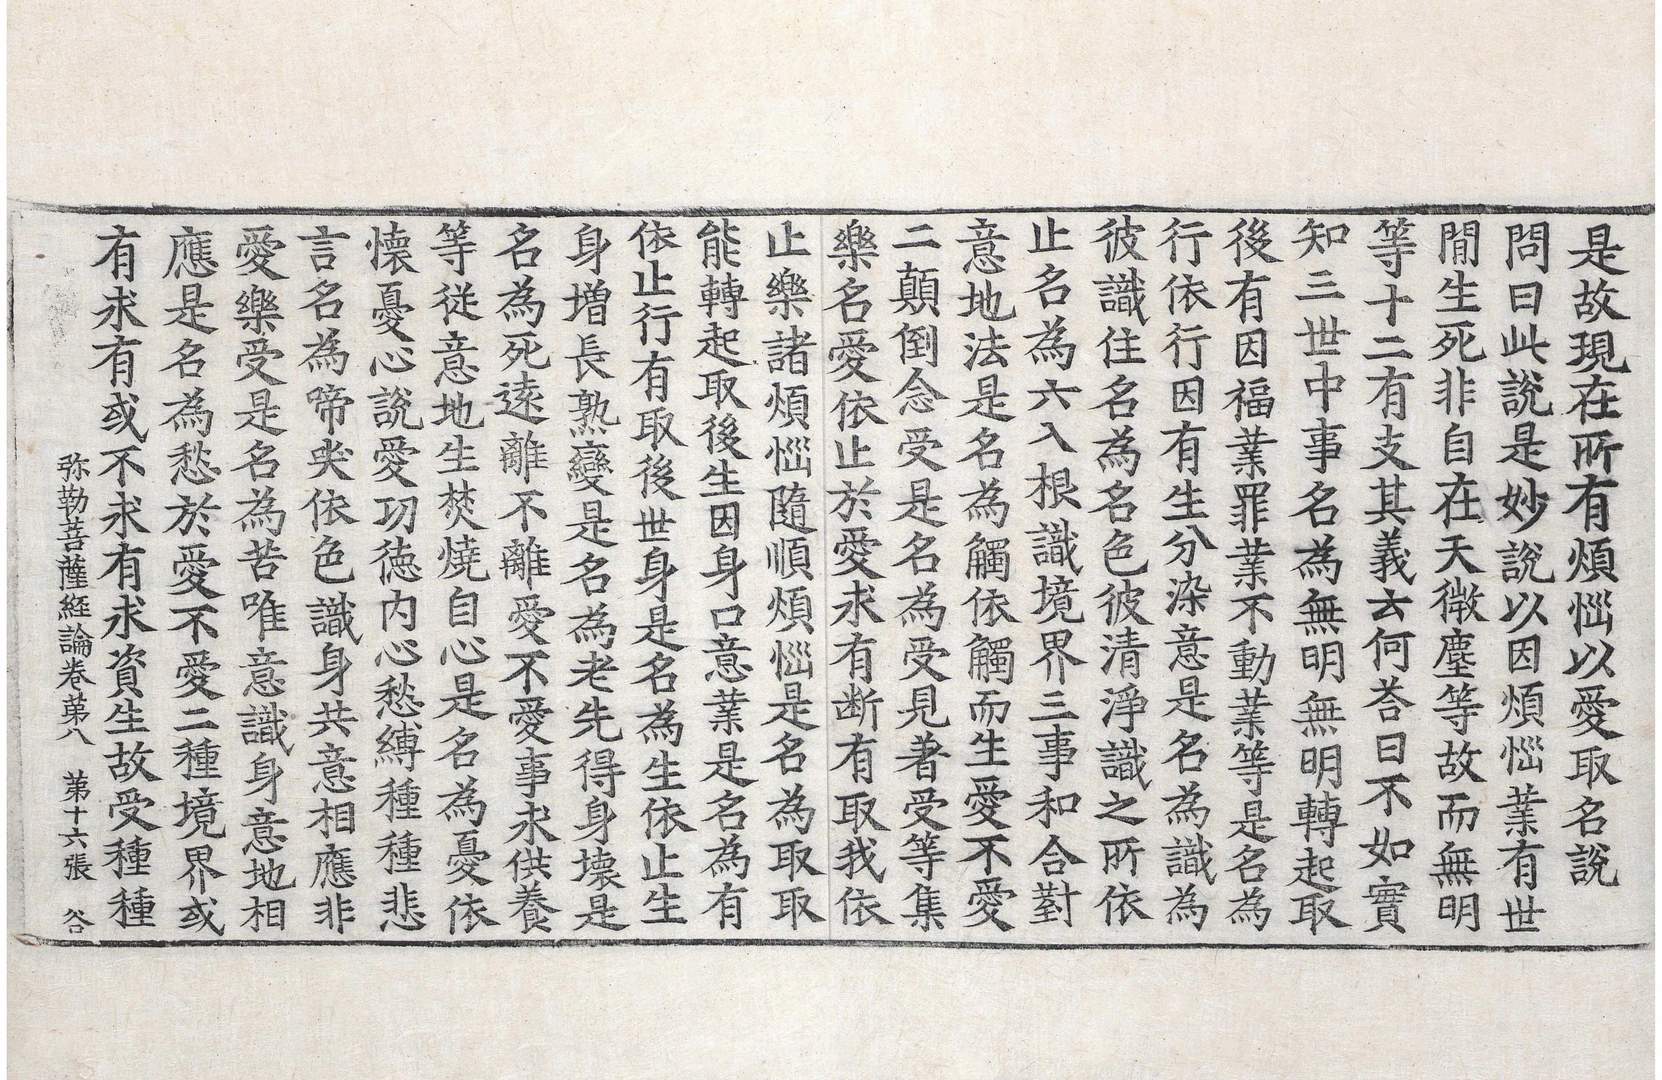 是故現在所有煩惱以愛取名說
問曰此說是妙說以因煩惱業有世
間生死非自在天微塵等故而無明
等十二有支其義云何荅曰不如實
知三世中事名為無明無明轉起取
後有因福業罪業不動業等是名為
行依行因有生分染意是名為識為
彼識住名為名色彼清淨識之所依
止名為六入根識境界三事和合對
意地法是名為觸依觸而生愛不愛
二顛倒念受是名為受見著受等集
樂名愛依止於愛求有斷有取我依
止樂諸煩惱隨順煩惱是名為取取
能轉起取後生因身口意業是名為有
依止行有取後世身是名為生依止生
身增長熟變是名為老先得身壞是
名為死遠離不離愛不愛事求供養
等從意地生焚燒自心是名為憂依
懷憂心說愛功德內心愁縛種種悲
言名為啼哭依色識身共意相應非
愛樂受是名為苦唯意識身意地相
應是名為愁於愛不愛二種境界或
有求有或不求有求資生故受種種
弥勒菩薩経論卷第八 第十六張 谷